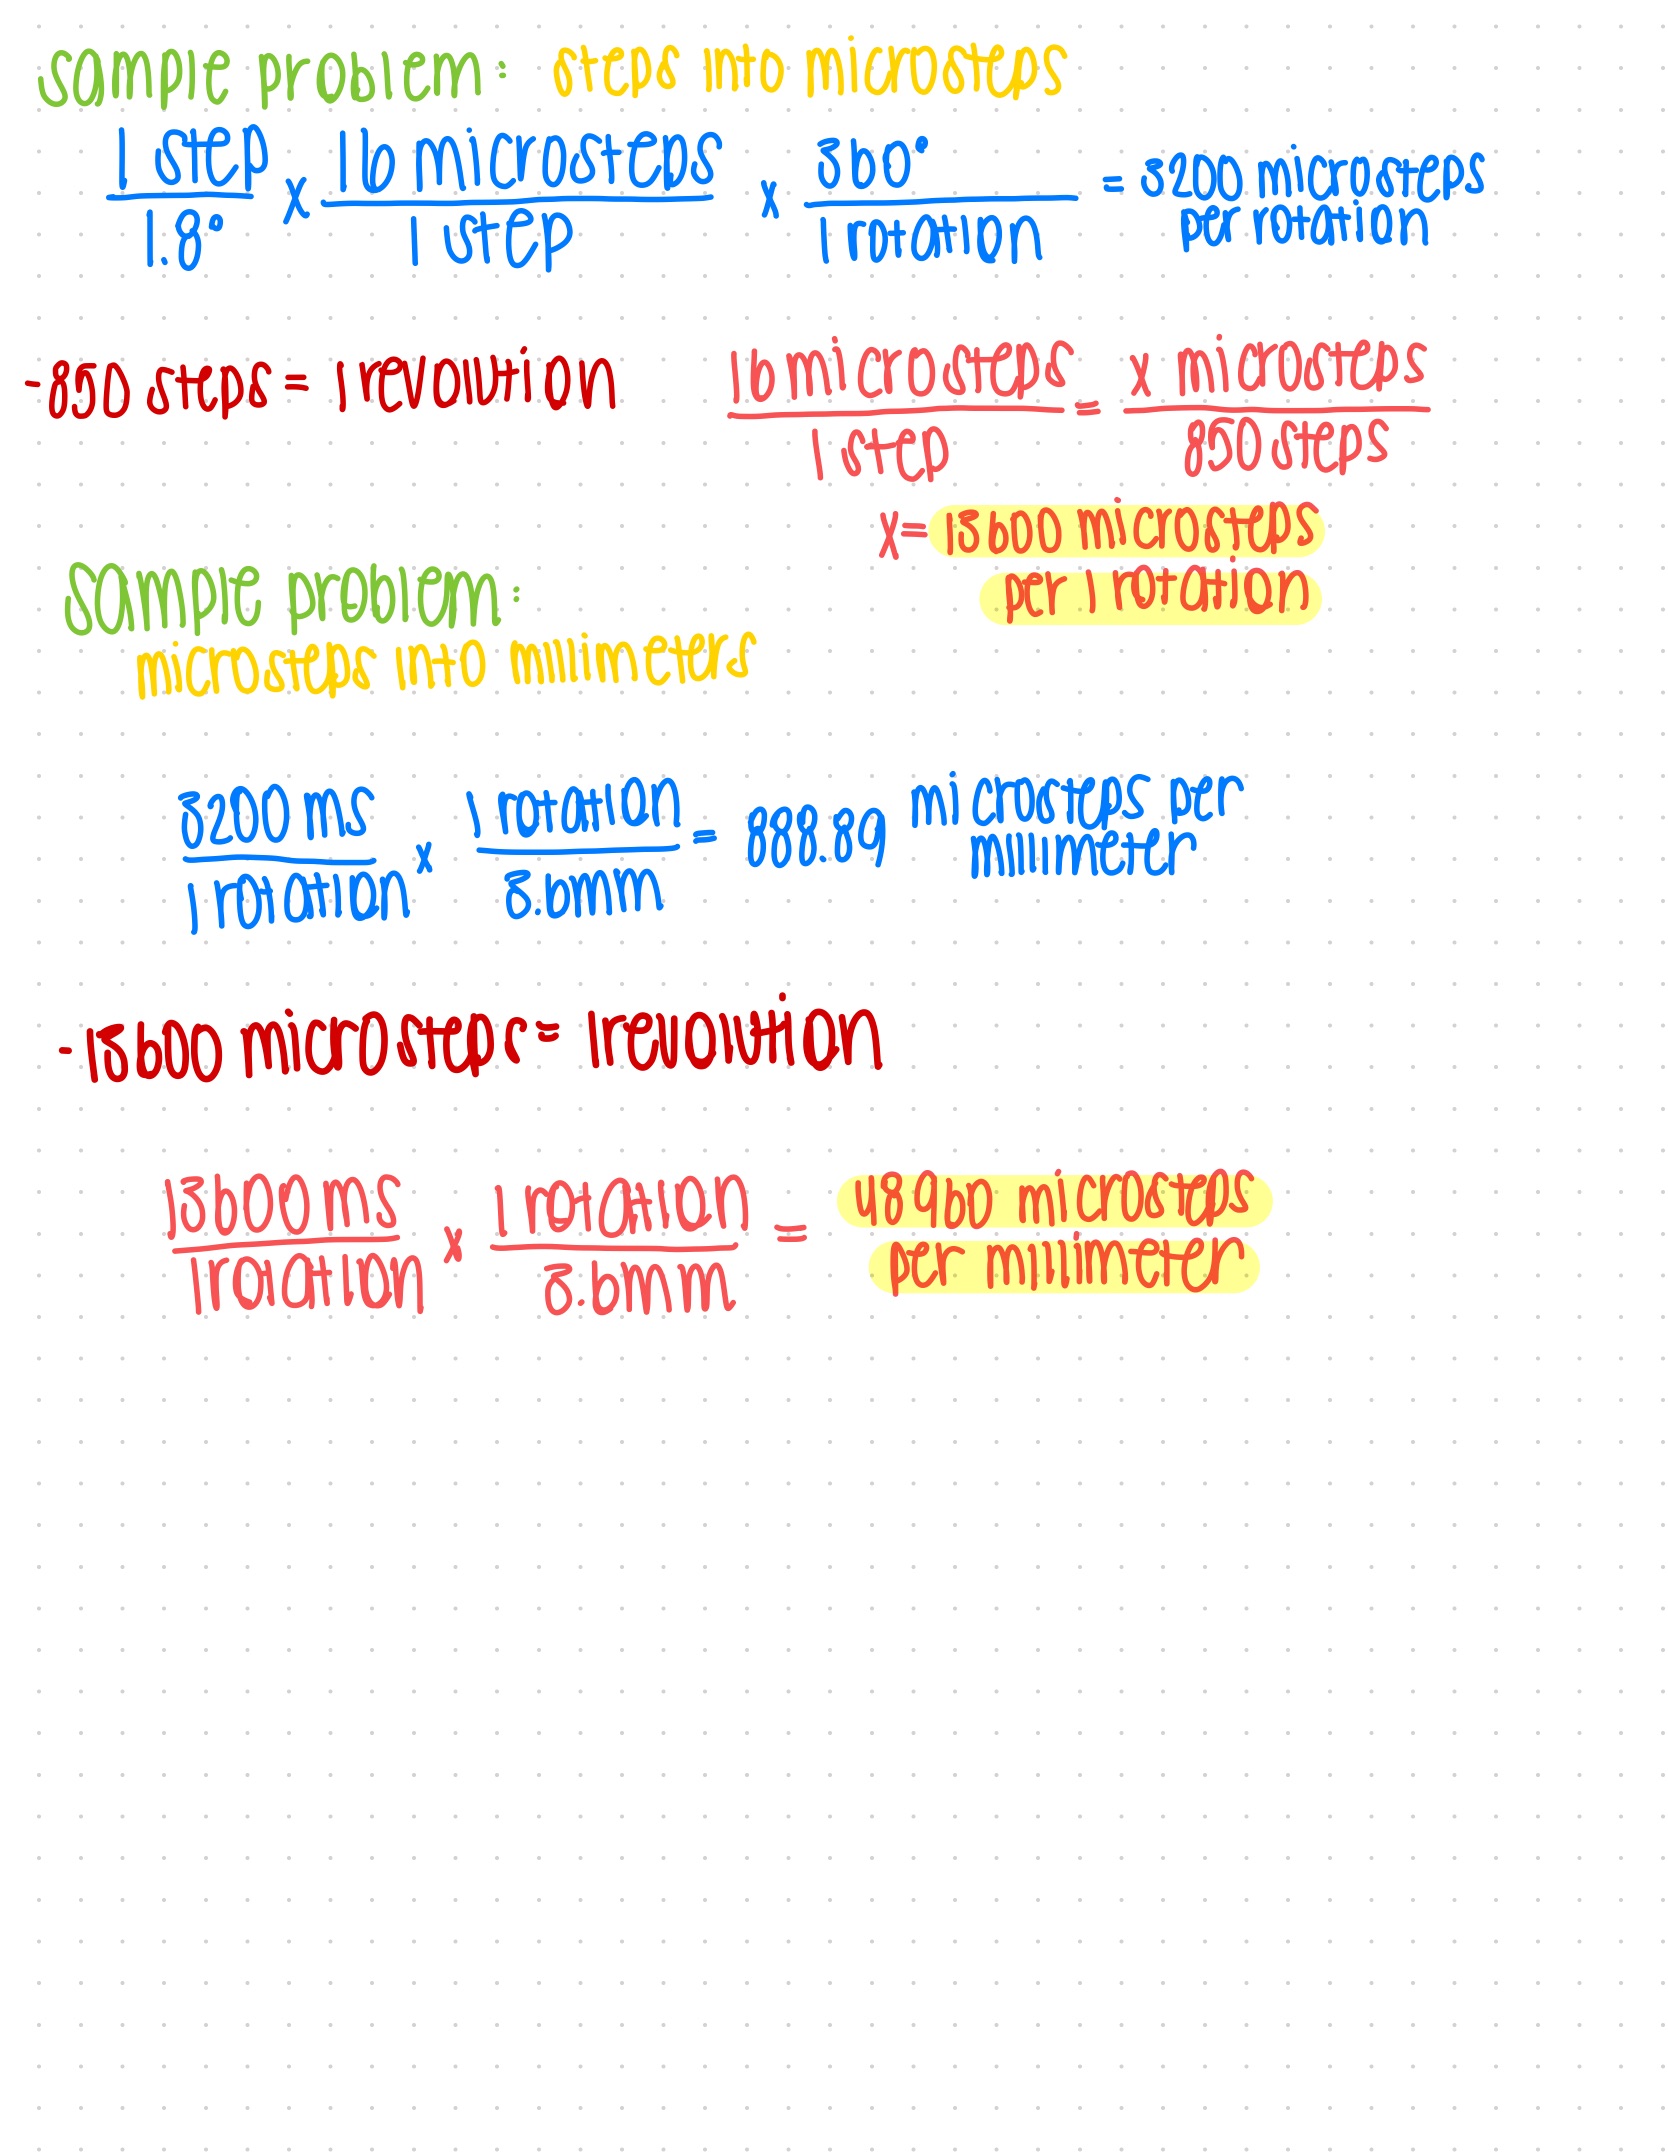 sample problem: steps into microsteps
1 step / 1.8° x 16 microsteps / 1 step x 360° / 1 rotation = 3200 microsteps per rotation
-850 steps = 1 revolution
16 microsteps / 1 step = x microsteps / 850 steps
x = 13600 microsteps
per 1 rotation
sample problem:
microsteps into millimeters
3200 ms / 1 rotation x 1 rotation / 3.6mm = 888.89 microsteps per millimeter
-13600 microsteps = 1 revolution
13600 ms / 1 rotation x 1 rotation / 3.6mm = 48960 microsteps
per millimeter